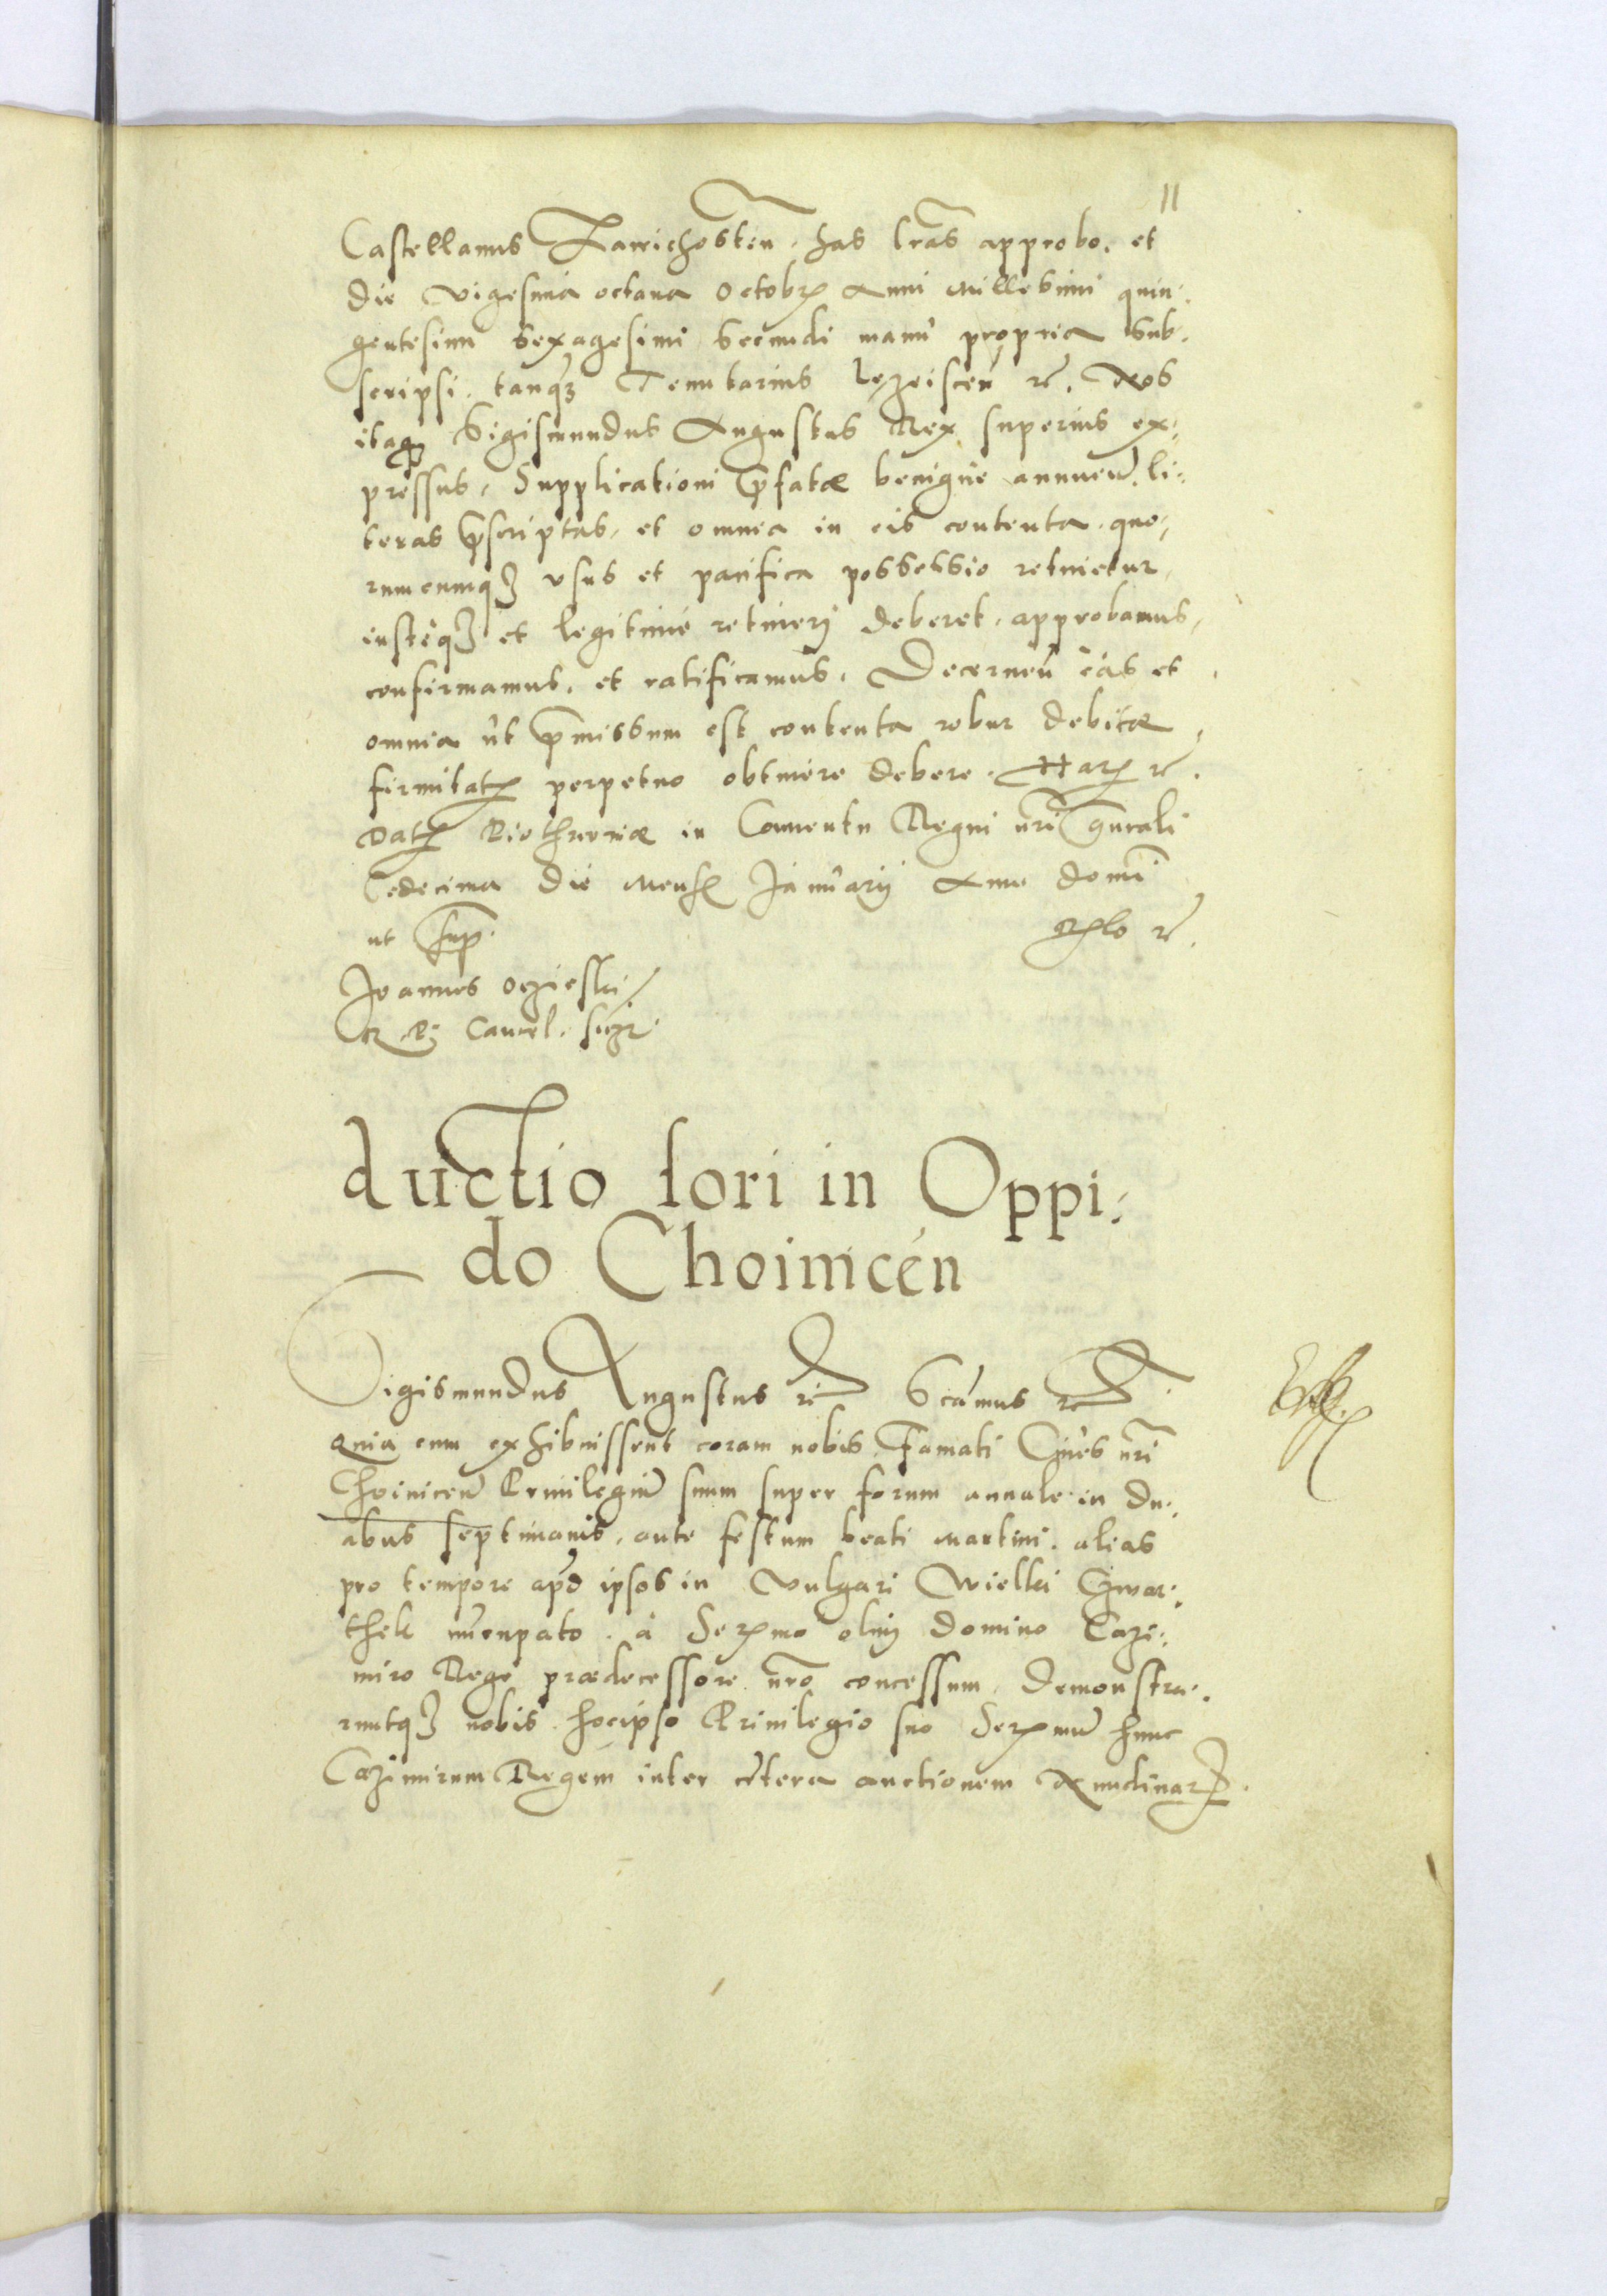 11
Castellanus Zawichosten. has lr̃as approbo. et
die vigesima octaua Octobr̃ Anni Millesimi quin:
gentesimi sexagesimi secundi manu propria sub:
scripsi. tanq̃ꝫ Tenutarius Lezeiscen̄ ꝛc̃. Nos
itaqꝫ Sigismundus Augustus Rex superius ex:
pressus, Supplicationi p̃fatæ benignè annuen̄. li:
teras p̃scriptas, et omnia in eis contenta. quo:
rumcumqꝫ vsus et pacifica possessio retinetur,
iustéqꝫ et legitimè retineri deberet, approbamus,
confirmamus, et ratificamus. Decernen̄ eas et
omnia ùt p̃missum est contenta robur debitæ
firmitatꝭ perpetuo obtinere debere. Harꝝ ꝛc̃.
Datꝭ Piothrcouiæ in Conuentu Regni nr̃i gñrali
Sedecima die Mensꝭ Januarij Anno domi
ut sup̃.
Rẽlo ꝛc̃.
Joannes Oczieski
R. P. Cancel. sszt.
Auctio fori in Oppi:
do Choinicén
Sigismundus Augustus ꝛc̃ Sca̅mus ꝛc̃.
Quia cum exhibuissent coram nobis Famati Ciues nr̃i
Choinicen̄ Priuilegiū suum super forum annale in du:
abus septimanis, ante festum beati Martini. alias
pro tempore apd̃ ipsos in vulgari Wielki Czwar:
thek nūcupato. à Serẽmo olim domino Cazi:
miro Rege prædecessore nr̃o concessum, demonstra:
runtqꝫ nobis hocipso Priuilegio suo Serẽmū hunc
Cazimirum Regem inter cętera auctionem Nundinarꝝ.